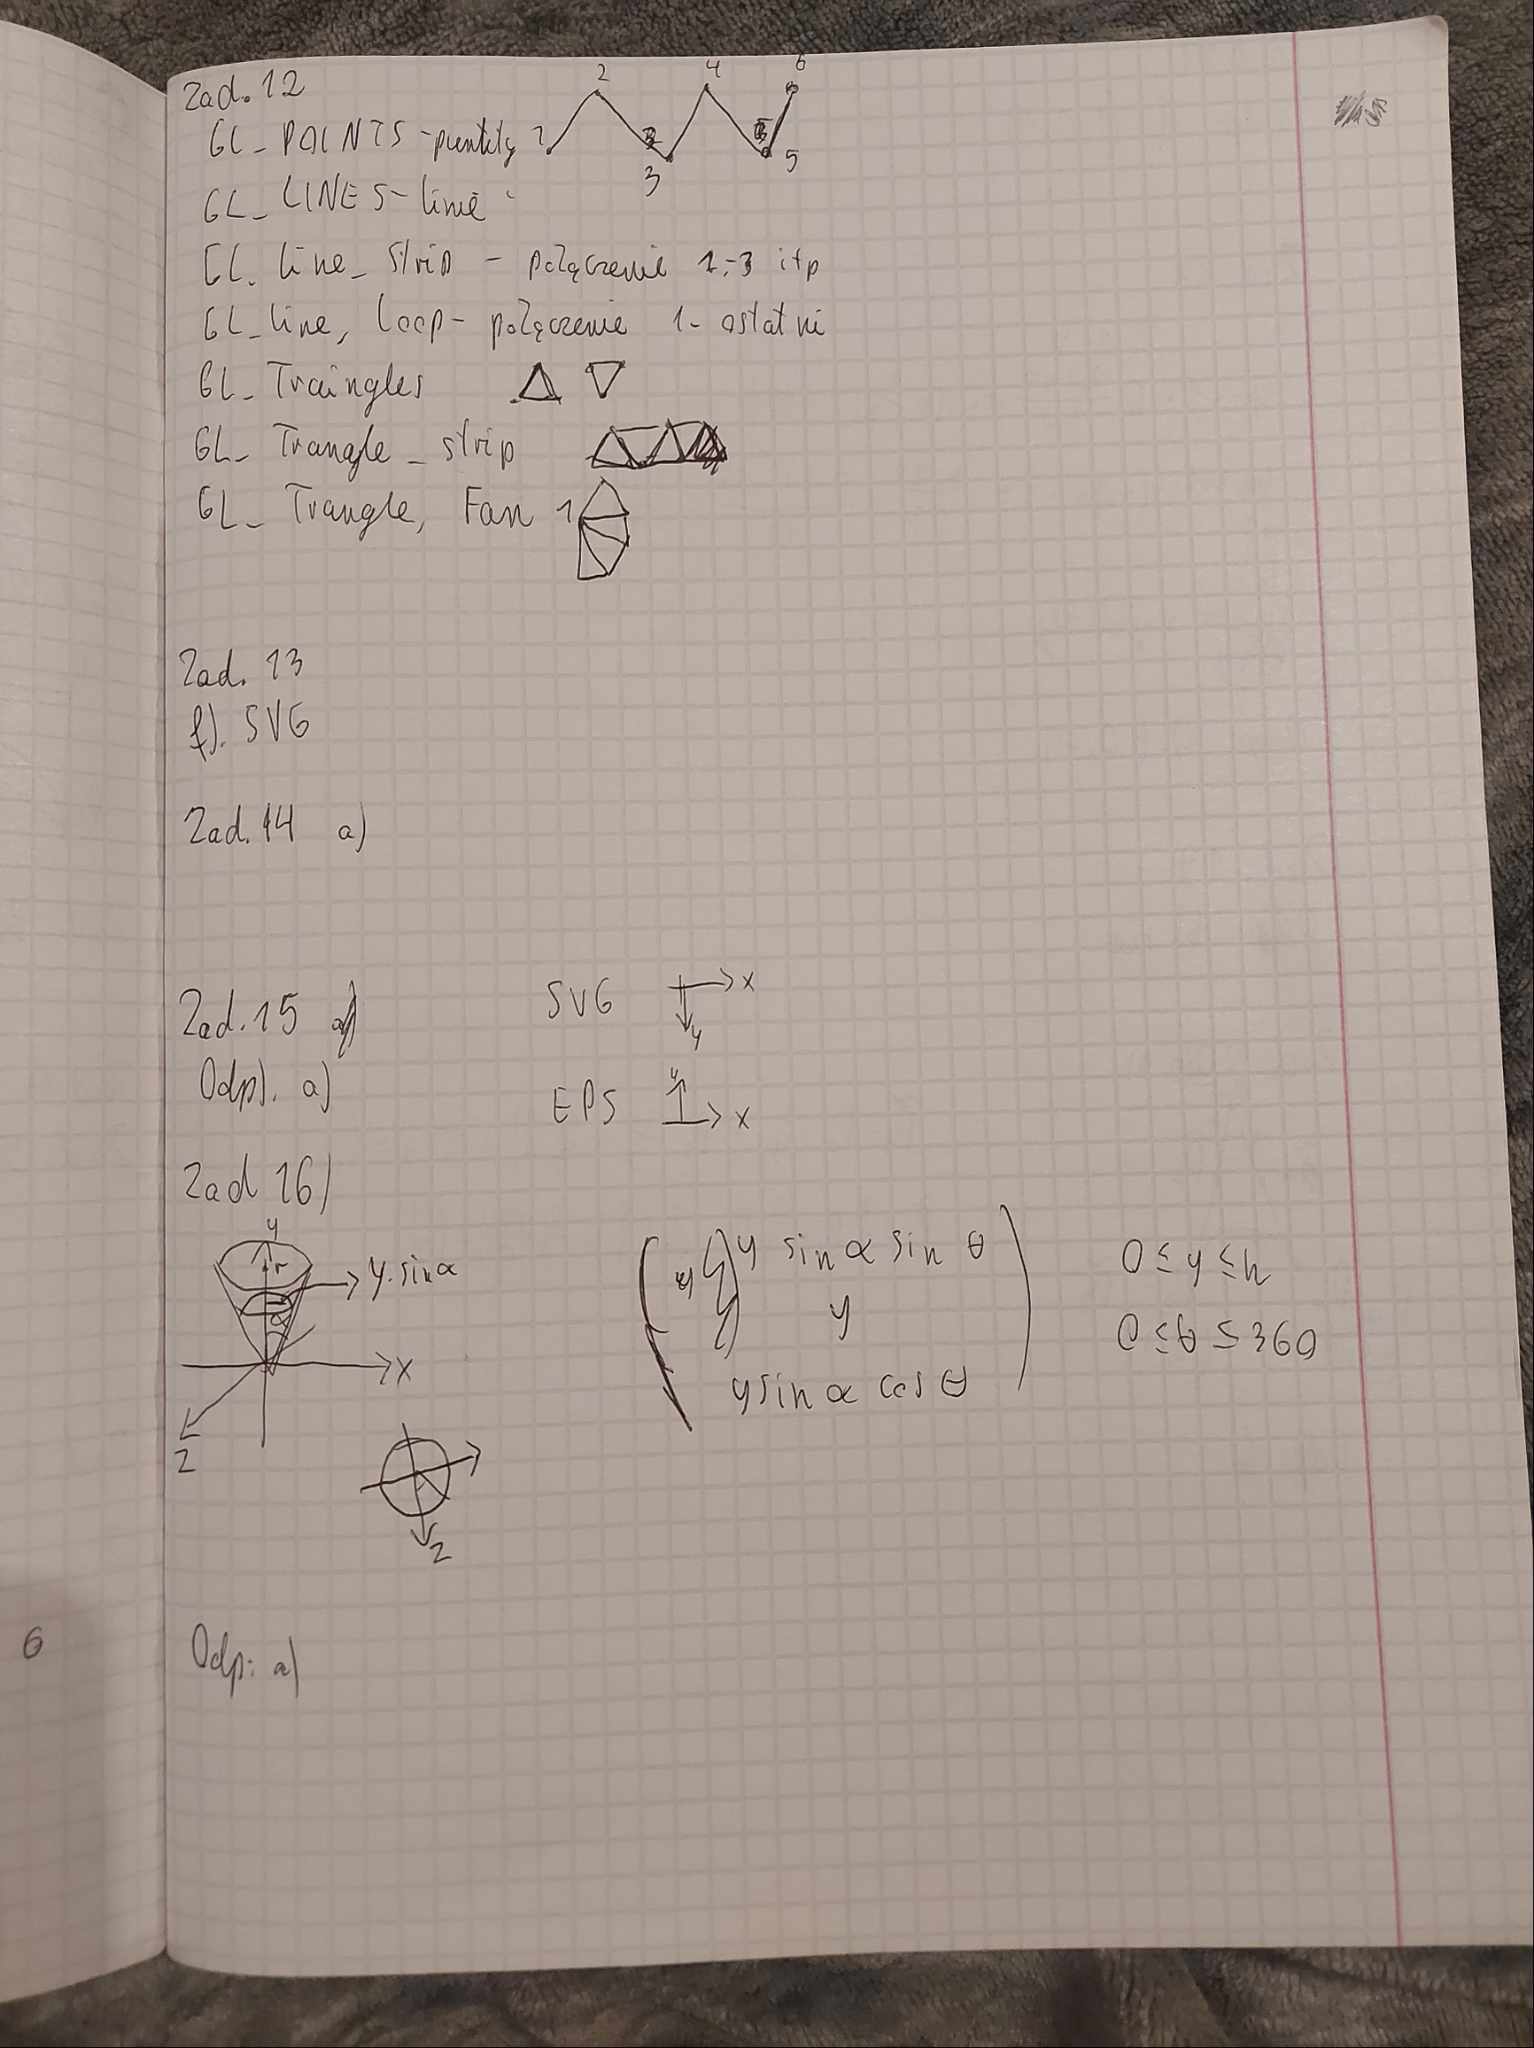 Zad. 12
2 4 6
GL_POINTS - punkty 1
3 5
GL_LINES - linie
GL. line_strip - połączenie 1-3 itp
GL_line, Loop - połączenie 1- ostatni
GL_Traingles
GL_Trangle_strip
GL_Trangle, Fan 1
Zad. 13
f). SVG
Zad. 14 a)
SVG x
y
Zad. 15
Odp). a)
EPS y
x
Zad 16)
y
r
y·sinα
α
x
z
y sin α sin θ
y
y sin α cos θ
0 ≤ y ≤ h
0 ≤ θ ≤ 360
z
6
Odp: a)